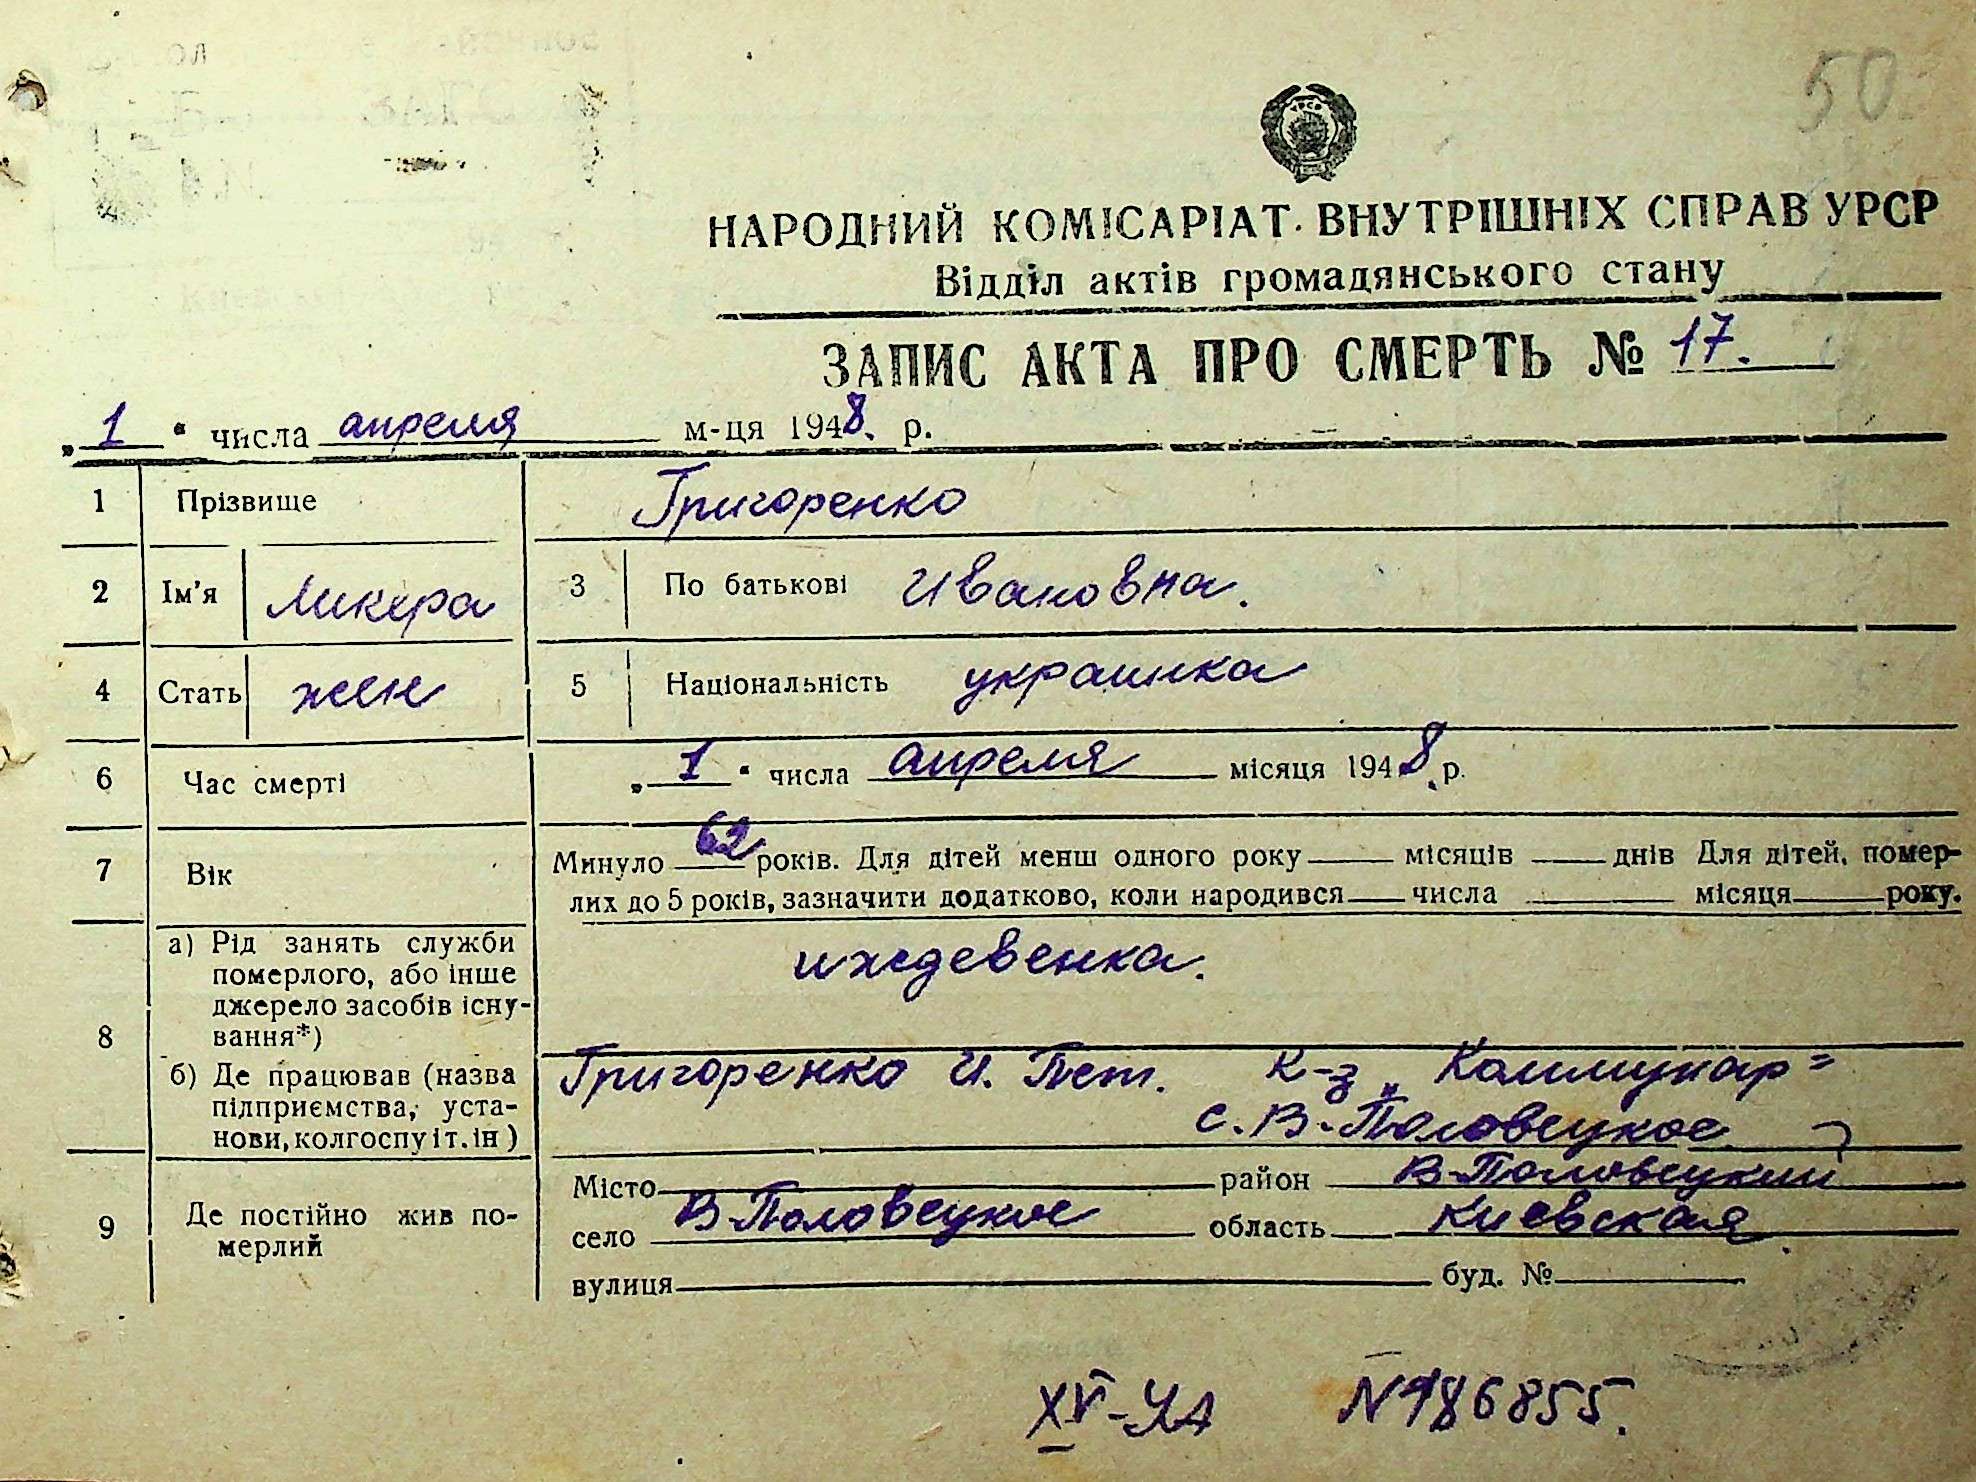 50
НАРОДНИЙ КОМІСАРІАТ ВНУТРІШНІХ СПРАВ УРСР
Відділ актів громадянського стану
ЗАПИС АКТА ПРО СМЕРТЬ № 17.
„1“ числа апреля м-ця 1948. р.
1 Прізвище Григоренко
2 Ім'я Ликера 3 По батькові Ивановна.
4 Стать жен 5 Національність украинка
6 Час смерті „1“ числа апреля місяця 1948 р.
7 Вік Минуло 62 років. Для дітей менш одного року місяців днів Для дітей, помер-
лих до 5 років, зазначити додатково, коли народився числа місяця року.
8 а) Рід занять служби
померлого, або інше
джерело засобів існу-
вання*)
иждевенка.
б) Де працював (назва
підприємства, уста-
нови, колгоспу і т. ін)
Григоренко И. Пет. к-з „Коммунар"
с. В-Половецкое
9 Де постійно жив по-
мерлий
Місто район В-Половецкий
село В-Половецкое область Киевская
вулиця буд. №
XV-УА N186855.